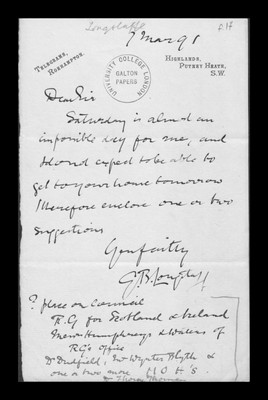 Longstaff
7 Mar 98
TELEGRAMS,
ROEHAMPTON.
HIGHLANDS,
PUTNEY HEATH,
S.W.
UNIVERSITY COLLEGE LONDON
GALTON
PAPERS
Dear Sir
Saturday is almost an
impossible day for me, and
I do not expect to be able to
get to your house tomorrow
I therefore enclose one or two
suggestions
Yrs faithfully
G.B. Longstaff
? place on Council
R.G. for Scotland & Ireland
Messrs Humphreys & Waters of
RG's office
Dr Dudfield, Dr Wynter Blyth &
one or two more M O H's.